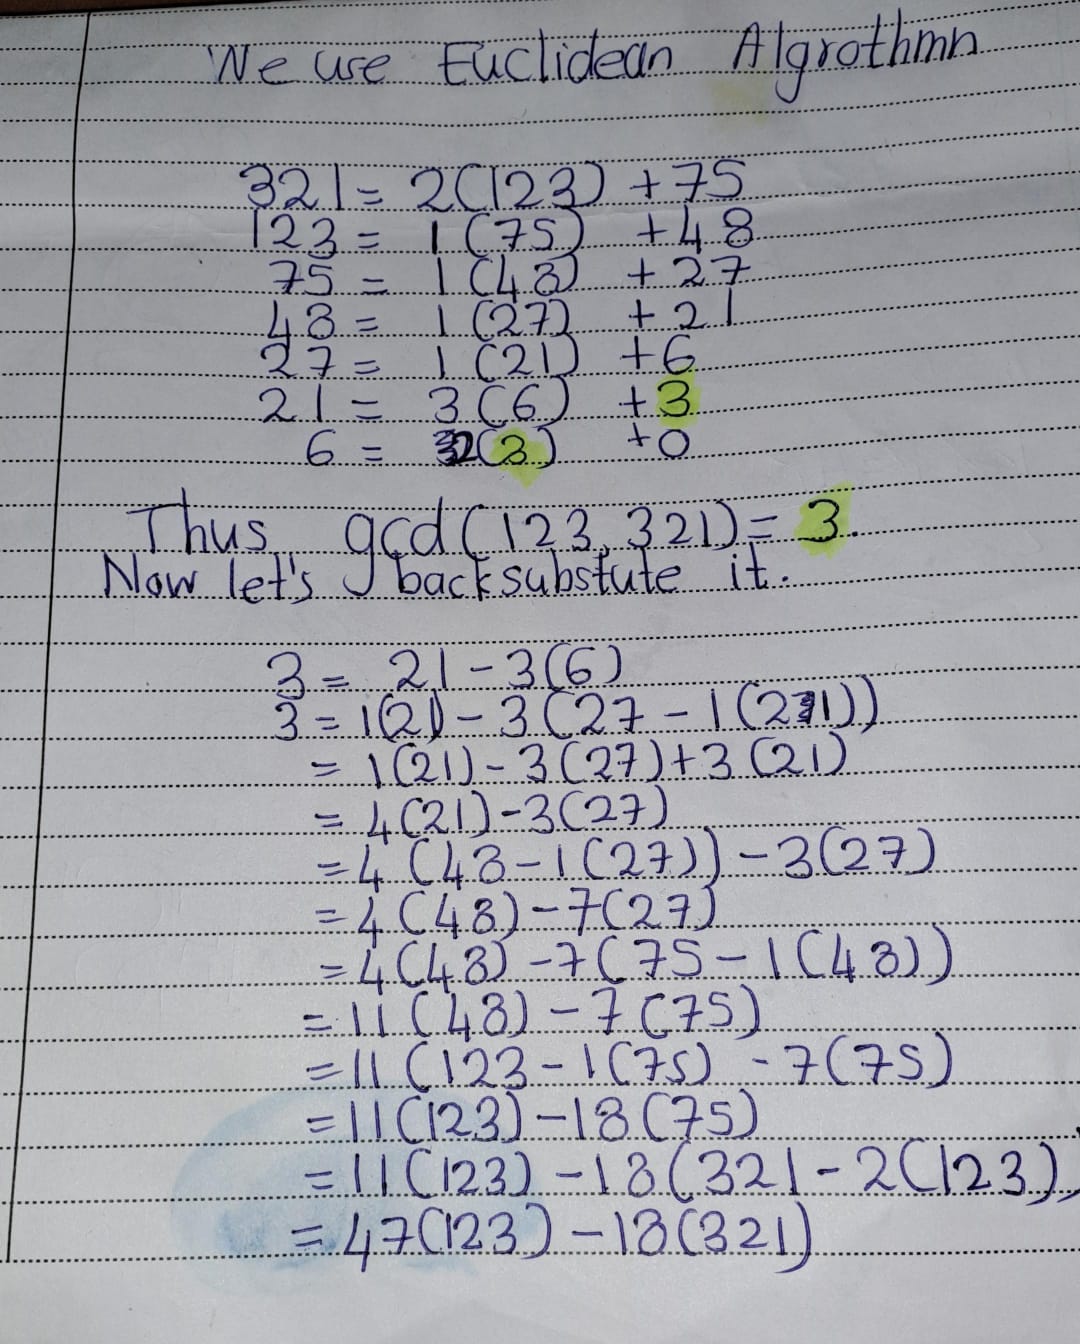 We use Euclidean Algrothmn
321 = 2(123) + 75
123 = 1(75) + 48
75 = 1(48) + 27
48 = 1(27) + 21
27 = 1(21) + 6
21 = 3(6) + 3
6 = 2(3) + 0
Thus gcd(123, 321) = 3.
Now let's backsubstute it.
3 = 21 - 3(6)
3 = 1(21) - 3(27 - 1(21))
= 1(21) - 3(27) + 3(21)
= 4(21) - 3(27)
= 4(48 - 1(27)) - 3(27)
= 4(48) - 7(27)
= 4(48) - 7(75 - 1(48))
= 11(48) - 7(75)
= 11(123 - 1(75) - 7(75)
= 11(123) - 18(75)
= 11(123) - 18(321 - 2(123))
= 47(123) - 18(321)